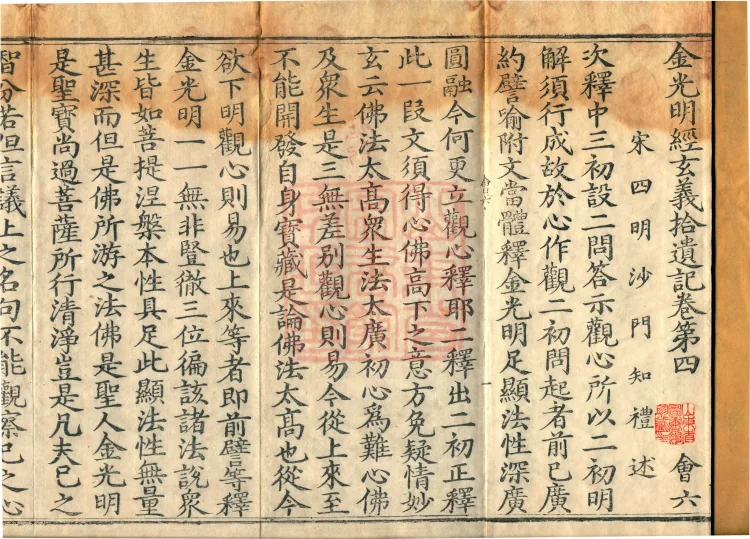 金光明經玄義拾遺記卷第四 會六
宋四明沙門知禮述
次釋中三初設二問答示觀心所以二初明
解須行成故於心作觀二初問起者前已廣
約譬喻附文當體釋金光明足顯法性深廣
會六
圓融今何更立觀心釋耶二釋出二初正釋
此一段文須得心佛高下之意方免疑情妙
玄云佛法太髙衆生法太廣初心爲難心佛
及衆生是三無差別觀心則易今從上來至
不能開發自身寶藏是論佛法太髙也從今
欲下明觀心則易也上來等者即前譬等釋
金光明一一無非豎徹三位徧該諸法說衆
生皆如菩提涅槃本性具足此顯法性無量
甚深而但是佛所游之法佛是聖人金光明
是聖寶尚過菩薩所行清淨豈是凡夫已之
智分若但言議上之名句不能觀察已之心